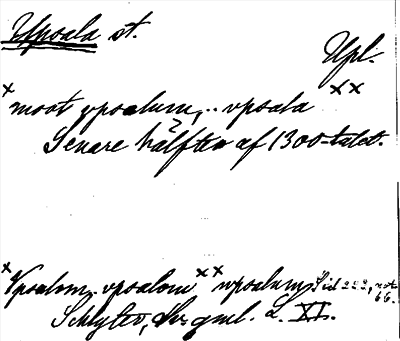 Upsala st.
Upl.
× moot vpsalum, .. vpsala ××
2
Senare hälften af 1300-talet.
× Vpsalom. vpsalom ×× wpsalum Sid 222, not
66.
Schlyter, Sv. gml. L. XI.